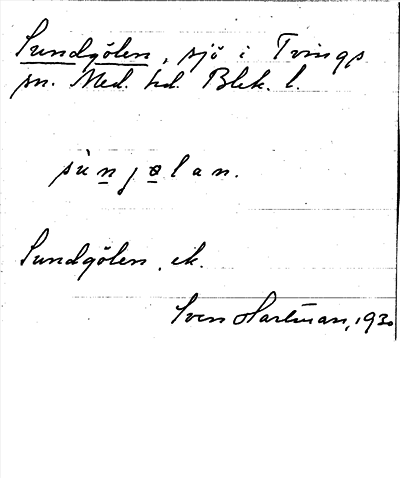 Sundgölen, sjö i Tvings
sn. Med. hd. Blek. l.
sùnjølan.
Sundgölen, ek.
Sven Hartman, 1930